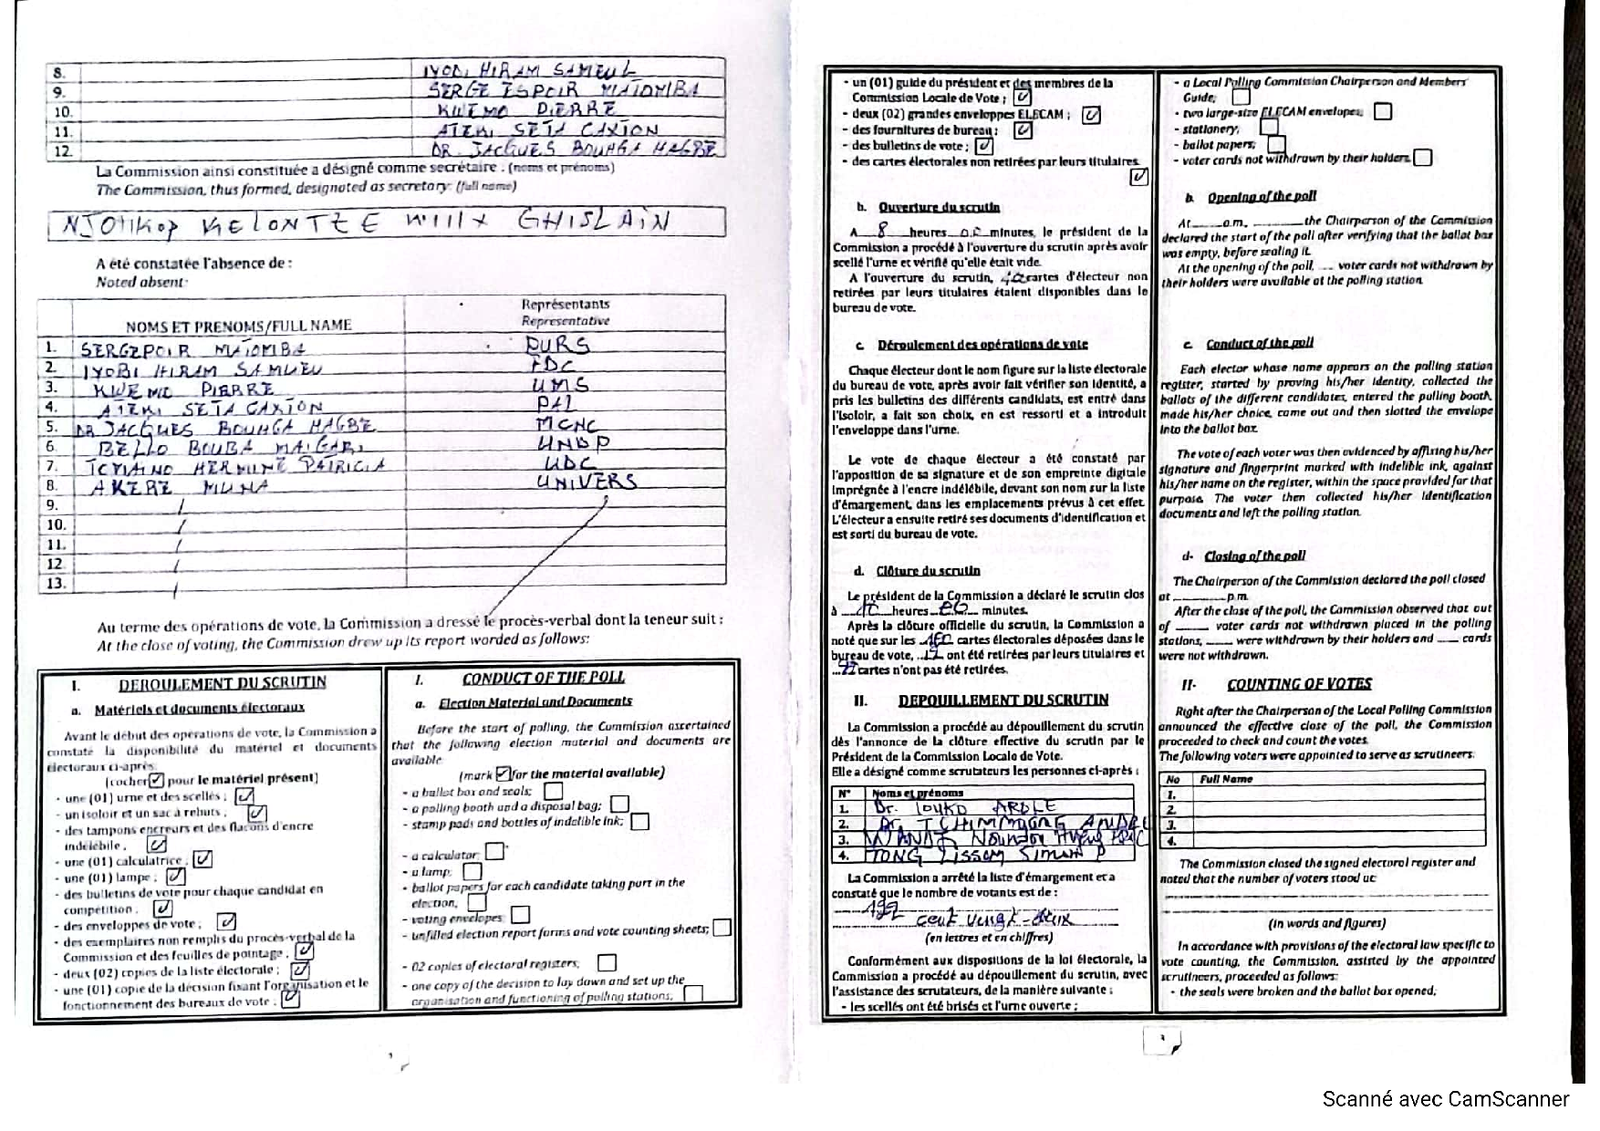 8. IYODI HIRAM SAMEUL
9. SERGE ESPOIR MATOMBA
10. KWEMO PIERRE
11. ATEKI SETA CAXTON
12. DR. JACQUES BOUHGA HAGBE
La Commission ainsi constituée a désigné comme secrétaire : (noms et prénoms)
The Commission, thus formed, designated as secretary: (full name)
KELONTZE GHISLAIN
A été constatée l'absence de :
Noted absent:
NOMS ET PRENOMS/FULL NAME
Représentants
Representative
1. SERGEPOIR MATOMBA PURS
2. IYOBI HIRAM SAMUEU FDC
3. KWEMO PIERRE UMS
4. ATEKI SETA CAXTON PAL
5. DR JACQUES BOUHGA HAGBE MCNC
6. BELLO BOUBA MAIGARI UNDP
7. HERMINE PATRICIA UDC
8. AKERE MUNA UNIVERS
9.
10.
11.
12.
13.
Au terme des opérations de vote, la Commission a dressé le procès-verbal dont la teneur suit :
At the close of voting, the Commission drew up its report worded as follows:
I. DEROULEMENT DU SCRUTIN
a. Matériels et documents électoraux
Avant le début des opérations de vote, la Commission a
constaté la disponibilité du matériel et documents
électoraux ci-après
(cocher ☑ pour le matériel présent)
- une (01) urne et des scellés ; ☑
- un isoloir et un sac à rebuts ; ☑
- des tampons encreurs et des flacons d'encre
indélébile ; ☑
- une (01) calculatrice ; ☑
- une (01) lampe ; ☑
- des bulletins de vote pour chaque candidat en
compétition ; ☑
- des enveloppes de vote ; ☑
- des exemplaires non remplis du procès-verbal de la
Commission et des feuilles de pointage ; ☑
- deux (02) copies de la liste électorale ; ☑
- une (01) copie de la décision fixant l'organisation et le
fonctionnement des bureaux de vote ; ☑
I. CONDUCT OF THE POLL
a. Election Material and Documents
Before the start of polling, the Commission ascertained
that the following election material and documents are
available
(mark ☑ for the material available)
- a ballot box and seals; ☐
- a polling booth and a disposal bag; ☐
- stamp pads and bottles of indelible ink; ☐
- a calculator; ☐
- a lamp; ☐
- ballot papers for each candidate taking part in the
election; ☐
- voting envelopes; ☐
- unfilled election report forms and vote counting sheets; ☐
- 02 copies of electoral registers; ☐
- one copy of the decision to lay down and set up the
organisation and functioning of polling stations; ☐
- un (01) guide du président et des membres de la
Commission Locale de Vote ; ☑
- deux (02) grandes enveloppes ELECAM ; ☑
- des fournitures de bureau ; ☑
- des bulletins de vote ; ☑
- des cartes électorales non retirées par leurs titulaires
☑
b. Ouverture du scrutin
A 8 heures minutes, le président de la
Commission a procédé à l'ouverture du scrutin après avoir
scellé l'urne et vérifié qu'elle était vide.
A l'ouverture du scrutin, cartes d'électeur non
retirées par leurs titulaires étaient disponibles dans le
bureau de vote.
c Déroulement des opérations de vote
Chaque électeur dont le nom figure sur la liste électorale
du bureau de vote, après avoir fait vérifier son identité, a
pris les bulletins des différents candidats, est entré dans
l'isoloir, a fait son choix, en est ressorti et a introduit
l'enveloppe dans l'urne.
Le vote de chaque électeur a été constaté par
l'apposition de sa signature et de son empreinte digitale
imprégnée à l'encre indélébile, devant son nom sur la liste
d'émargement, dans les emplacements prévus à cet effet.
L'électeur a ensuite retiré ses documents d'identification et
est sorti du bureau de vote.
d. Clôture du scrutin
Le président de la Commission a déclaré le scrutin clos
à heures minutes.
Après la clôture officielle du scrutin, la Commission a
noté que sur les cartes électorales déposées dans le
bureau de vote, ont été retirées par leurs titulaires et
cartes n'ont pas été retirées.
II. DEPOUILLEMENT DU SCRUTIN
La Commission a procédé au dépouillement du scrutin
dès l'annonce de la clôture effective du scrutin par le
Président de la Commission Locale de Vote.
Elle a désigné comme scrutateurs les personnes ci-après :
N° Noms et prénoms
1. Dr.
2.
3.
4. TONG LISSOM SIMON P
La Commission a arrêté la liste d'émargement et a
constaté que le nombre de votants est de :
cent vingt-deux
(en lettres et en chiffres)
Conformément aux dispositions de la loi électorale, la
Commission a procédé au dépouillement du scrutin, avec
l'assistance des scrutateurs, de la manière suivante :
- les scellés ont été brisés et l'urne ouverte ;
- a Local Polling Commission Chairperson and Members'
Guide; ☐
- two large-size ELECAM envelopes; ☐
- stationery; ☐
- ballot papers; ☐
- voter cards not withdrawn by their holders. ☐
b. Opening of the poll
At a.m. the Chairperson of the Commission
declared the start of the poll after verifying that the ballot box
was empty, before sealing it.
At the opening of the poll, voter cards not withdrawn by
their holders were available at the polling station.
c. Conduct of the poll
Each elector whose name appears on the polling station
register, started by proving his/her identity, collected the
ballots of the different candidates, entered the polling booth,
made his/her choice, came out and then slotted the envelope
into the ballot box.
The vote of each voter was then evidenced by affixing his/her
signature and fingerprint marked with indelible ink, against
his/her name on the register, within the space provided for that
purpose. The voter then collected his/her identification
documents and left the polling station.
d- Closing of the poll
The Chairperson of the Commission declared the poll closed
at p.m.
After the close of the poll, the Commission observed that out
of voter cards not withdrawn placed in the polling
stations, were withdrawn by their holders and cards
were not withdrawn.
II- COUNTING OF VOTES
Right after the Chairperson of the Local Polling Commission
announced the effective close of the poll, the Commission
proceeded to check and count the votes.
The following voters were appointed to serve as scrutineers:
No Full Name
1.
2.
3.
4.
The Commission closed the signed electoral register and
noted that the number of voters stood at:
(in words and figures)
In accordance with provisions of the electoral law specific to
vote counting, the Commission, assisted by the appointed
scrutineers, proceeded as follows:
- the seals were broken and the ballot box opened;
3
Scanné avec CamScanner